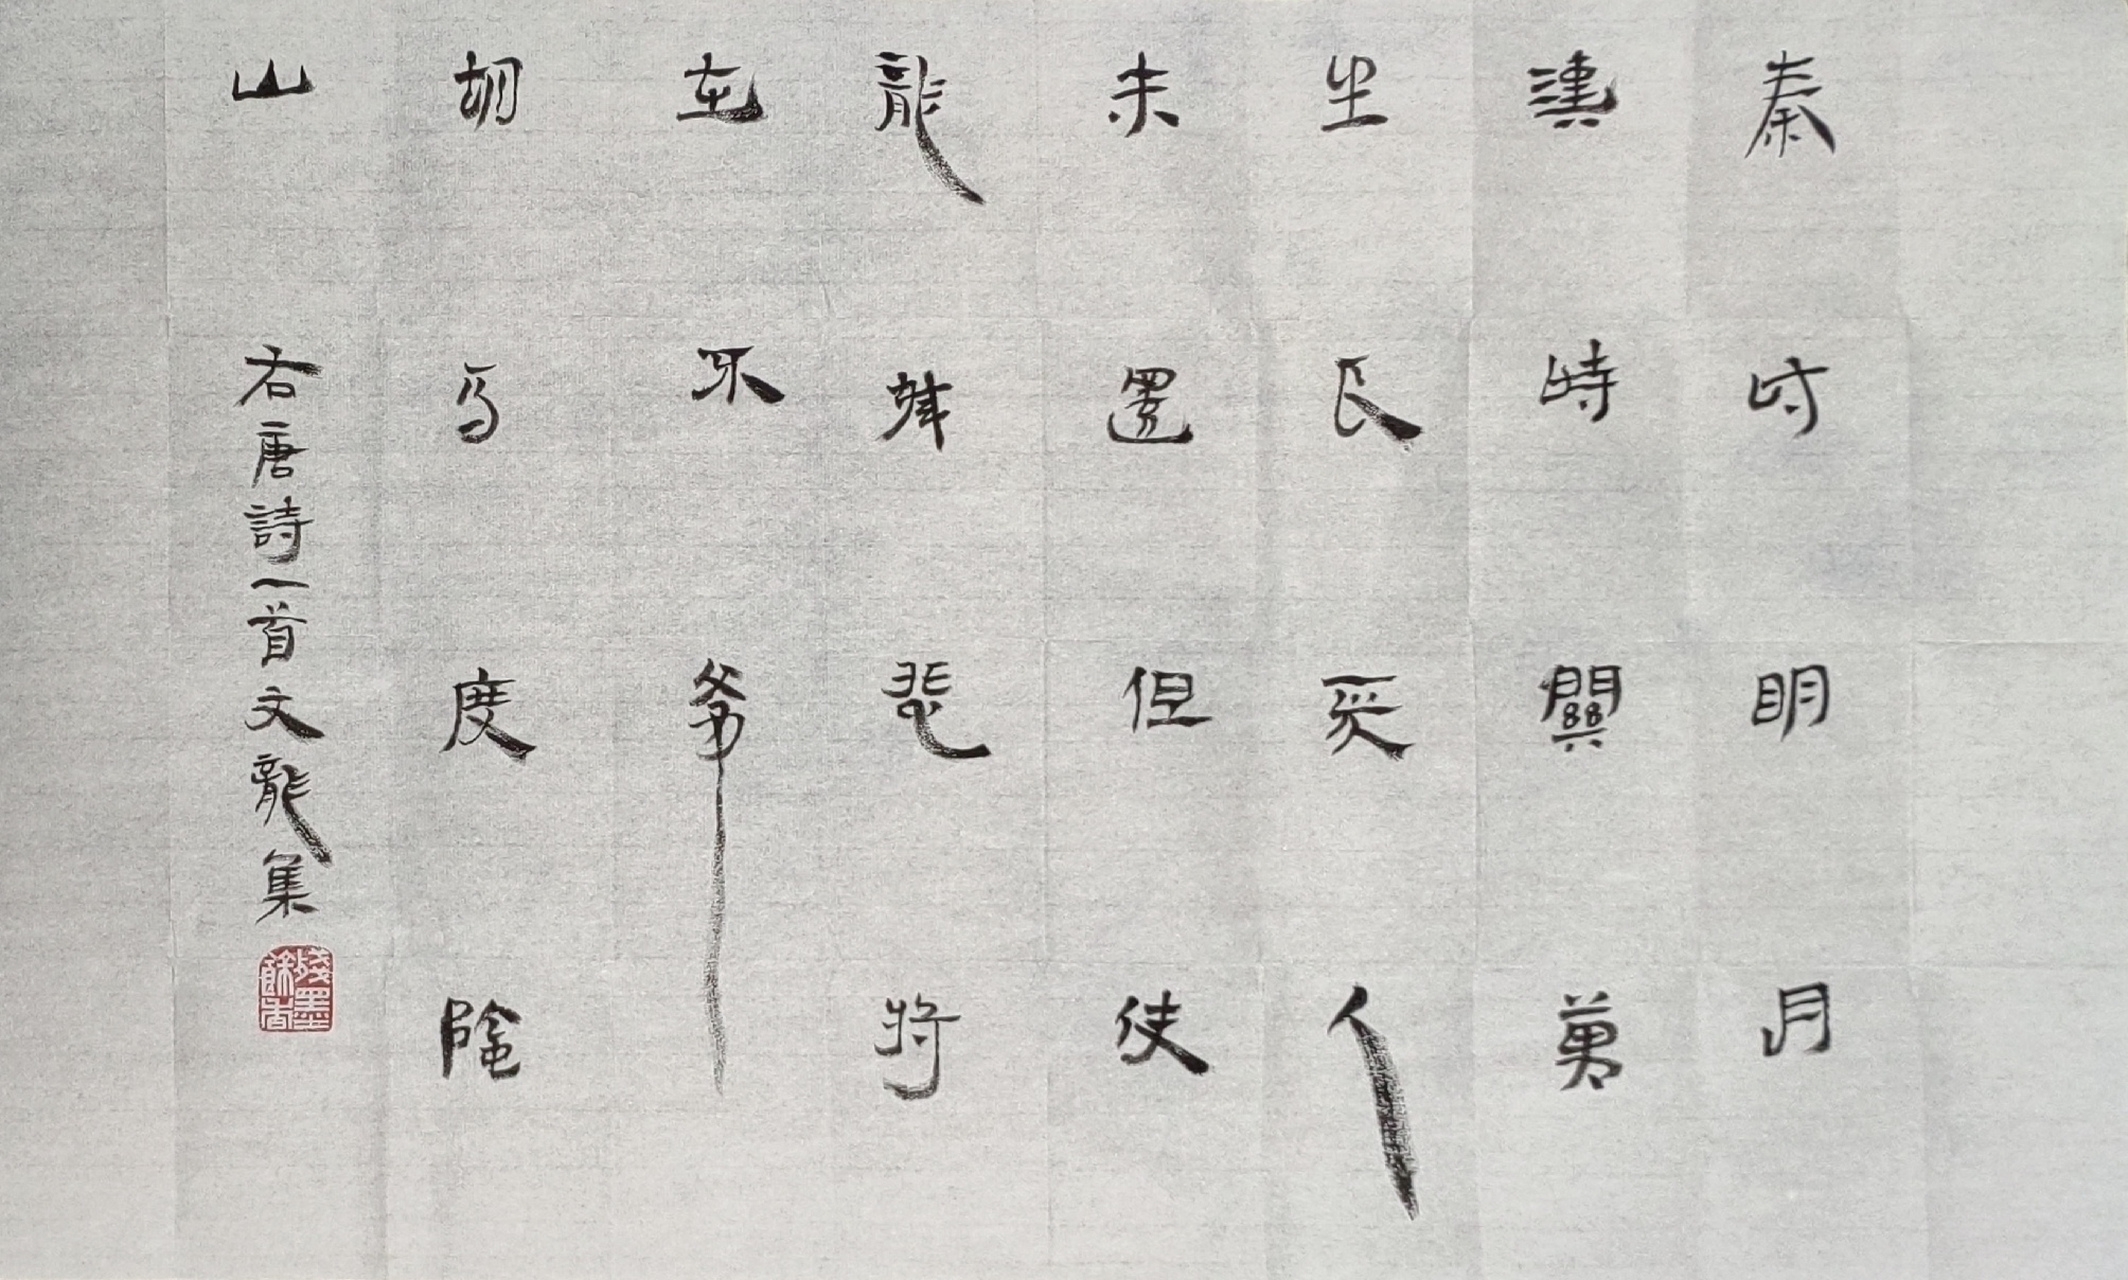 秦時眀月
漢時關萬
里長征人
未還但使
龍城飛將
在不教
胡馬度陰
山
右唐詩一首文龍集
殘墨餘香